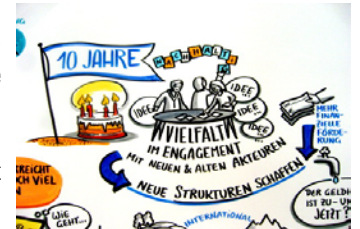 10 JAHRE
NACHHALTIG
IDEE
IDEE
IDEE
IDEE
VIELFALT
IM ENGAGEMENT
MIT NEUEN & ALTEN AKTEUREN
NEUE STRUKTUREN SCHAFFEN
MEHR
FINAN-
ZIELLE
FÖRDE-
RUNG
REICHT
OCH VIEL
DER GELDH
IST ZU- UN
JETZT?
WIE
GEHT...
INTERNATIONAL